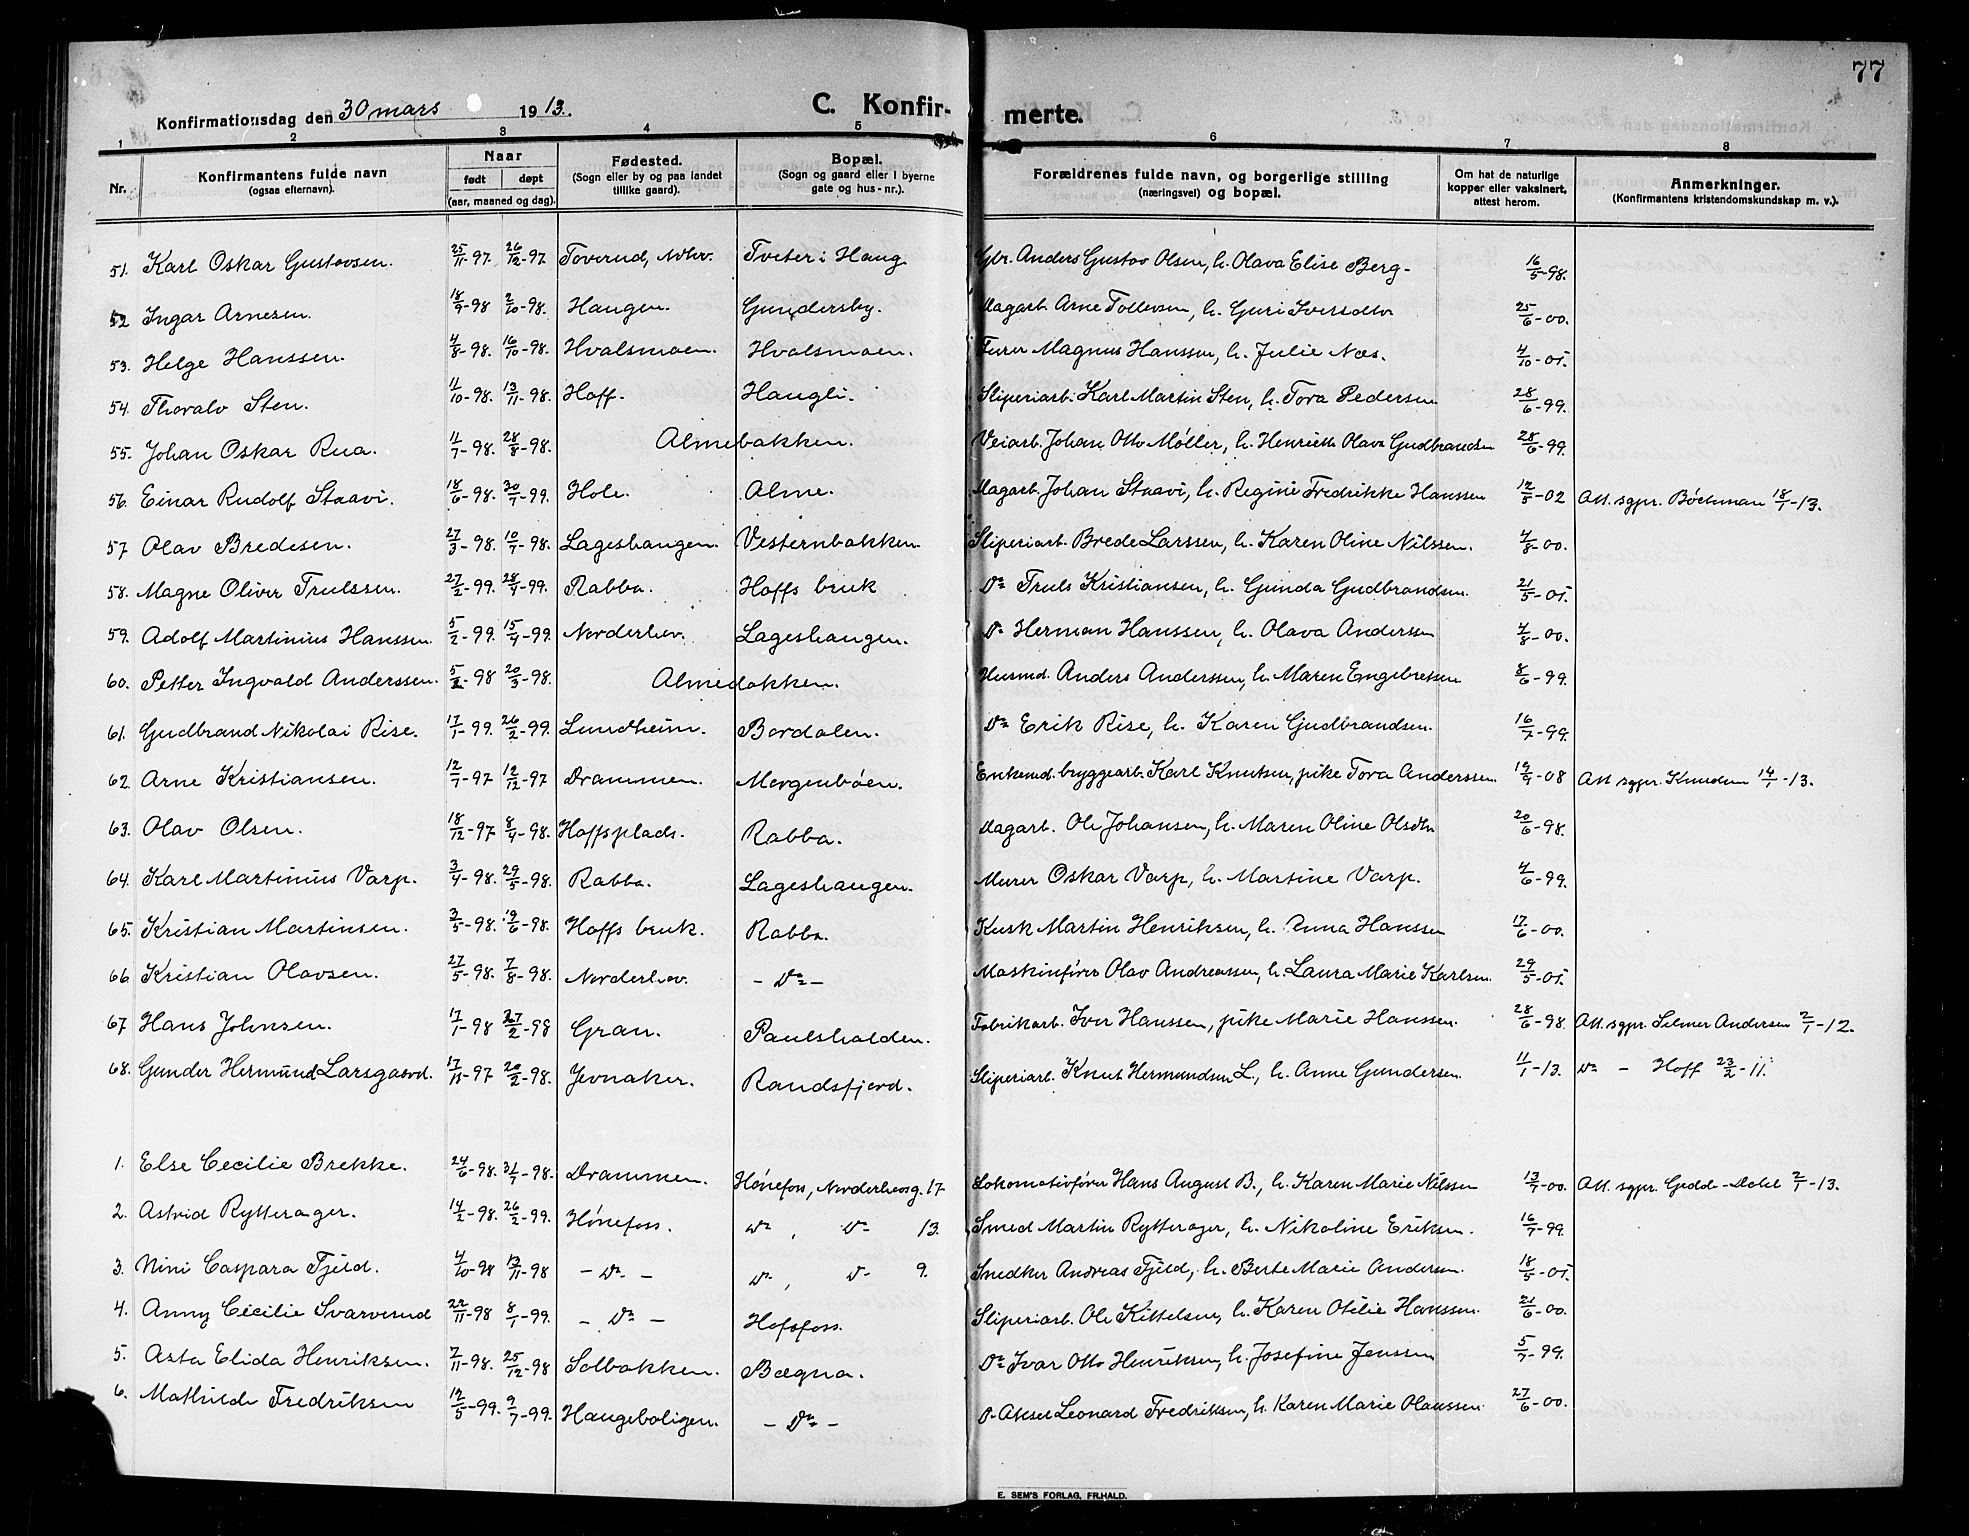 77
Konfirmationsdag den 30 mars 1913.
C. Konfir- merte.
1 2 3 4 5 6 7 8
Nr. Konfirmantens fulde navn (ogsaa efternavn). Naar født døpt (aar, maaned og dag). Fødested. (Sogn eller by og paa landet tillike gaard). Bopæl. (Sogn og gaard eller i byerne gate og hus-nr.). Forældrenes fulde navn, og borgerlige stilling (næringsvei) og bopæl. Om hat de naturlige kopper eller vaksinert, attest herom. Anmerkninger. (Konfirmantens kristendomskundskap m. v.).
51. Karl Oskar Gustavsen. 25/11-97. 26/12-97 Toverud, Ndhv. Tveter i Haug Gbr. Anders Gustav Olsen, h. Olava Elise Berg- 16/5-98.
52 Ingar Arnesen. 18/9-98 2/10-98. Haugen. Gundersby. Dagarb. Arne Tollevsen, h. Guri Iversdtr 25/6-00.
53. Helge Hanssen. 4/8-98. 16/10-98. Hvalsmoen. Hvalsmoen. Furer Magnus Hanssen, h. Julie Næs. 4/10-05.
54. Thoralv Sten. 11/10-98. 13/11-98. Hoff. Haugli. Sliperiarb. Karl Martin Sten, h. Tora Pedersen 28/6-99.
55. Johan Oskar Rua. 11/7-98. 28/8-98. Almebakken. Veiarb. Johan Otto Møller, h. Henriette Olava Gudbrandsen 28/6-99.
56. Einar Rudolf Staavi. 18/6-98. 30/7-99. Hole. Alme. Dagarb. Johan Staavi, h. Regine Fredrikke Hanssen 12/5-02 Att. sgpr. Bøckman 18/1-13.
57 Olav Bredesen. 27/3-98. 10/7-98. Lageshaugen. Vesternbakken. Sliperiarb. Brede Larssen, h. Karen Oline Nilssen. 4/8-00.
58. Magne Oliver Trulssen. 27/2-99. 28/4-99. Rabba. Hoffs bruk Do Truls Kristiansen, h. Gunda Gudbrandsen. 21/5-05.
59. Adolf Martinius Hanssen. 5/2-99. 15/4-99. Norderhov. Lageshaugen. Do Herman Hanssen, h. Olava Anderssen 4/8-00.
60. Petter Ingvald Anderssen. 5/2-98 20/3-98. Almebakken. Husmd. Anders Anderssen, h. Maren Engebretsen 8/6-99.
61. Gudbrand Nikolai Rise. 17/1-99. 26/2-99. Lundheim. Bordalen. Do Erik Rise, h. Karen Gudbrandsen. 16/7-99.
62 Arne Kristiansen. 12/7-97 12/12-97 Drammen. Morgenbøen. Enkemd. bryggearb. Karl Knutsen, pike Tora Anderssen. 19/9-08 Att sgpr. Knudsen 14/1-13.
63. Olav Olsen. 18/12-97 8/4-98. Hoffsplads. Rabba. Dagarb. Ole Johansen, h. Maren Oline Olsdtr 20/6-98.
64. Karl Martinius Varp. 3/4-98. 29/5-98. Rabba. Lageshaugen. Murer Oskar Varp, h. Martine Varp. 4/6-99.
65. Kristian Martinsen. 3/5-98. 19/6-98. Hoffs bruk. Rabba. Kusk Martin Henriksen, h. Anna Hanssen 17/6-00.
66 Kristian Olavsen. 27/5-98. 7/8-98. Norderhov. - Do - Maskinfører Olav Andreassen, h. Laura Marie Karlsen. 29/5-05.
67 Hans Johnsen. 17/1-98 27/2-98 Gran. Paulshalden. Fabrikarb. Iver Hanssen, pike Marie Hanssen. 28/6-98. Att. sgpr. Selmer Andersen 2/1-12.
68. Gunder Hermund Larsgaard. 17/11-97 20/2-98. Jevnaker. Randsfjord. Sliperiarb. Knut Hermundsen L., h. Anne Gundersen. 11/1-13. Do - Hoff 23/2-11.
1. Else Cecilie Brekke. 24/6-98. 31/7-98. Drammen. Hønefoss, Norderhovsg. 17 Lokomotivfører Hans August B., h. Karen Marie Nilssen 13/7-00. Att. sgpr. Gedde-Dahl 2/1-13.
2. Astrid Rytterager. 14/2-98. 26/2-99. Hønefoss. Do, Do 13. Smed Martin Rytterager, h. Nikoline Eriksen. 16/7-99.
3. Nini Caspara Fjeld. 4/10-98 13/11-98 - Do - Do, Do 9. Snedker Andreas Fjeld, h. Berte Marie Andersen. 18/5-05.
4. Anny Cecilie Svarverud 22/11-98 8/1-99. - Do - Hofsfoss. Sliperiarb. Ole Kittelsen, h. Karen Otilie Hanssen. 21/6-00.
5. Asta Elida Henriksen. 7/11-98. 25/12-98 Solbakken. Bægna. Do Ivar Otto Henriksen, h. Josefine Jenssen 5/7-99.
6. Mathilde Fredriksen 12/5-99. 9/7-99. Haugeboligen. - Do - Do Aksel Leonard Fredriksen, h. Karen Marie Olaussen. 27/6-00.
E. SEM'S FORLAG, FR.HALD.